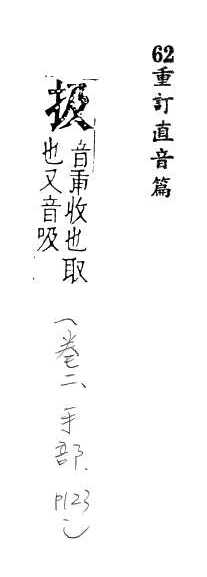 62重訂直音篇
扱
音收也取
也又音吸
(卷二、手部、P123)